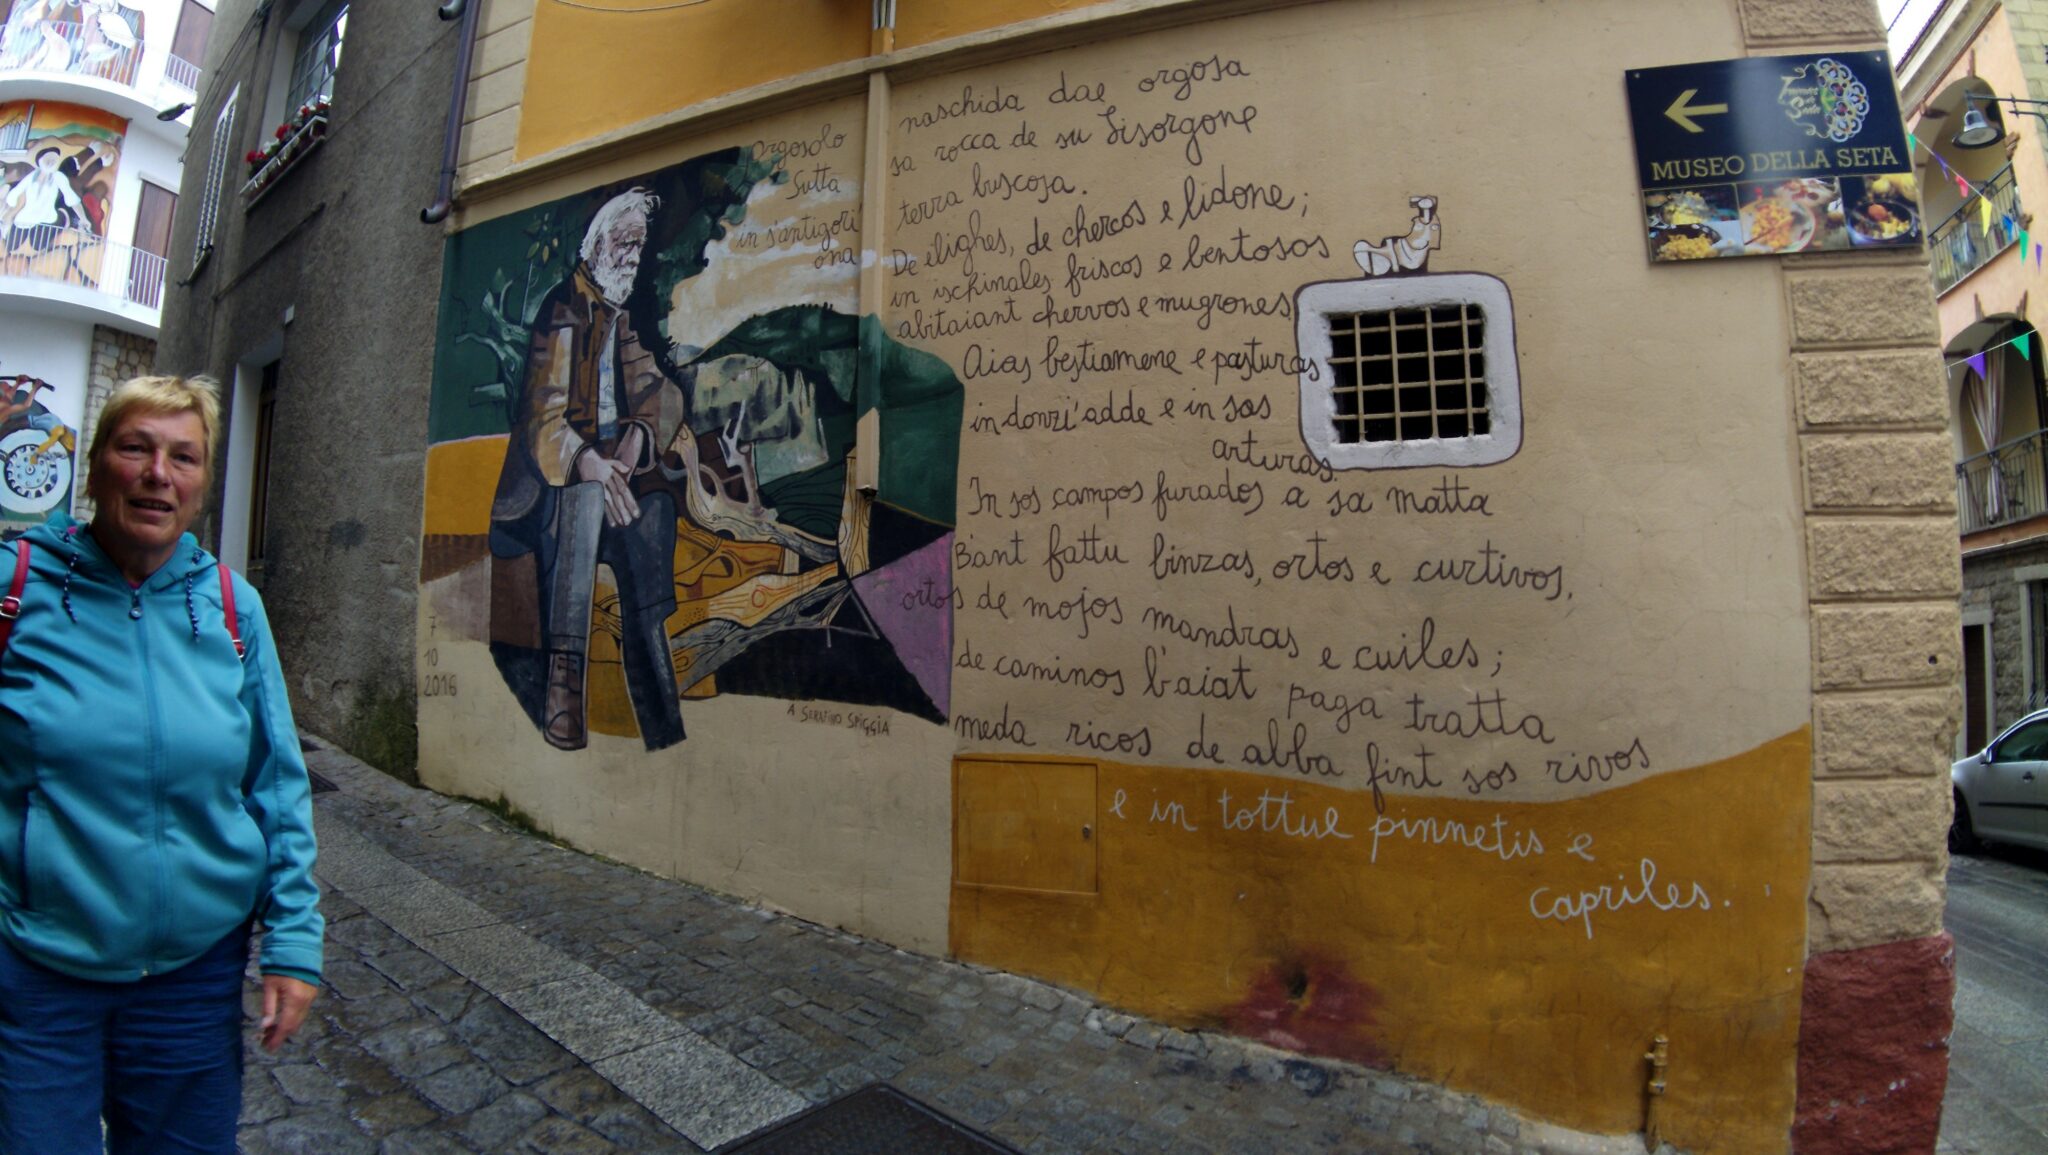 Orgosolo
Sutta
in s'antigori'
ona
naschida dae orgosa
sa rocca de su Lisorgone
terra buscosa.
De elighes, de chercos e lidone;
in ischinales friscos e bentosos
abitaiant chervos e mugrones
Aias bestiamene e pasturas
in donzi'adde e in sas
arturas.
In sos campos furados a sa matta
B'ant fattu binzas, ortos e curtivos,
ortos de mojos mandras e cuiles;
de caminos b'aiat paga tratta
meda ricos de abba fint sos rivos
e in tottue pinnetis e
capriles.
7
10
2016
A SERAFINO SPIGGIA
MUSEO DELLA SETA